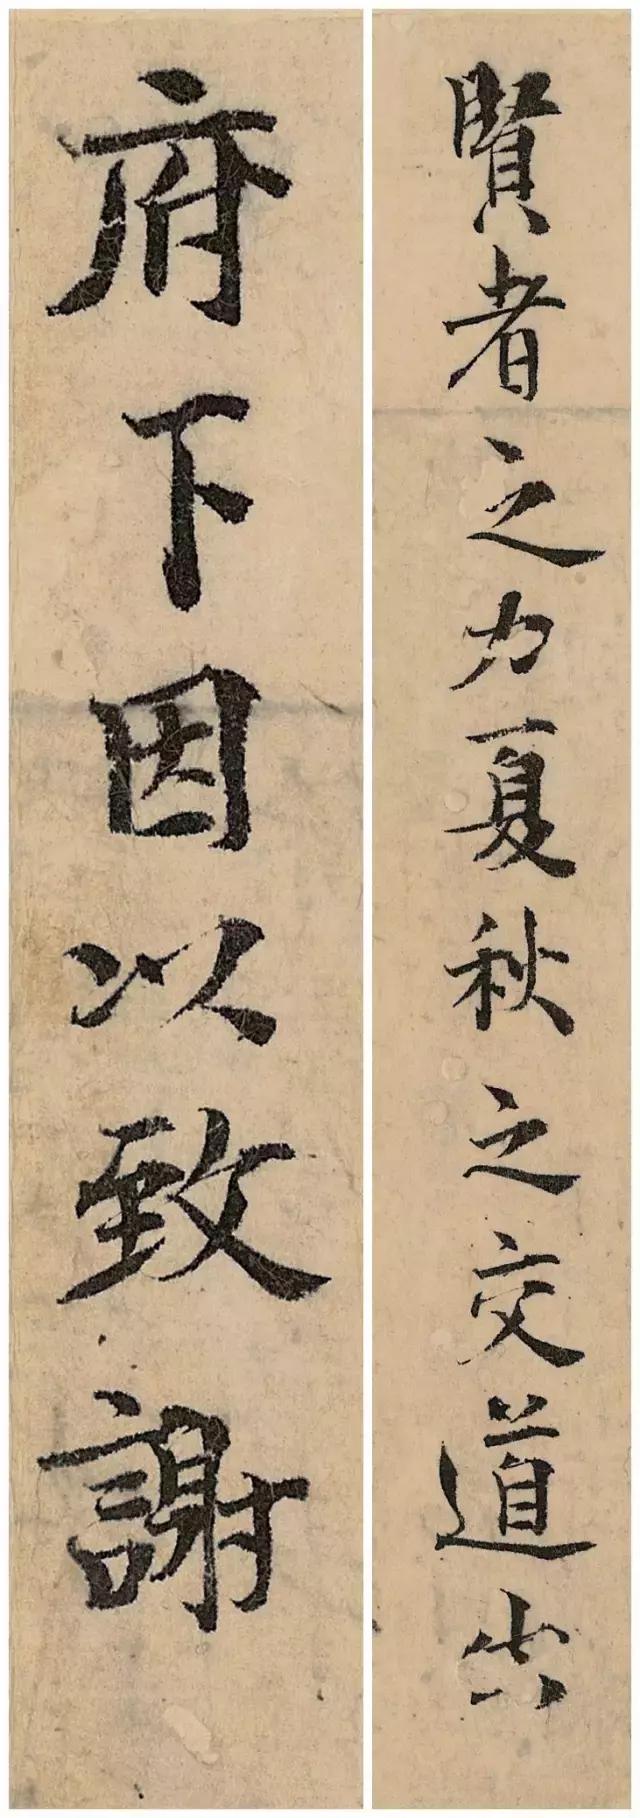 賢者之力夏秋之交道出
府下因以致謝